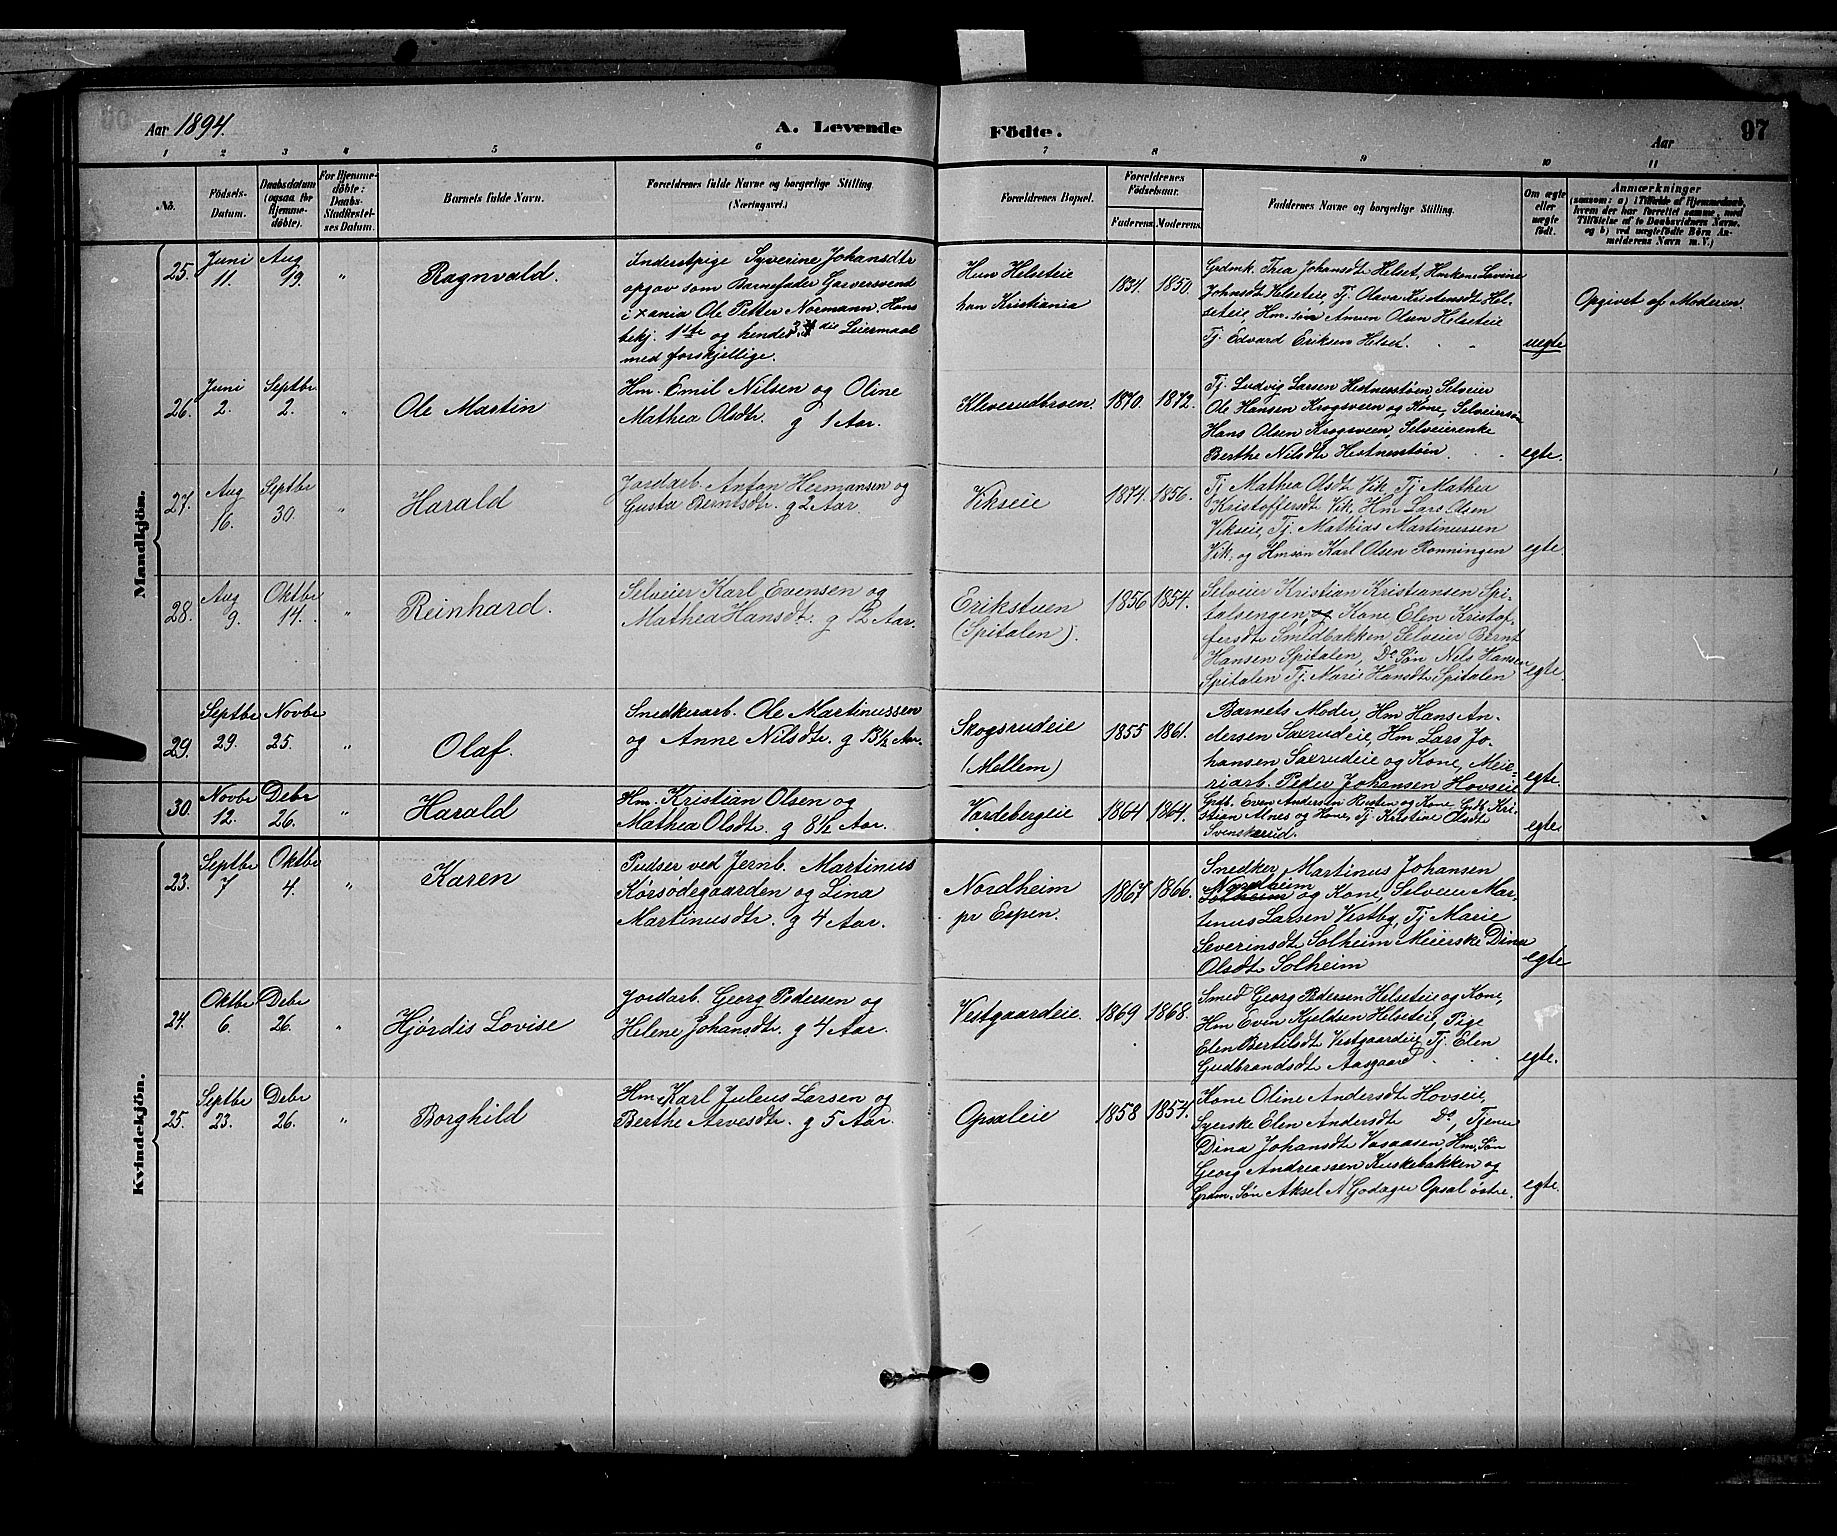 Aar 1894.
A. Levende
Födte.
Aar
97
1 2 3 4 5 6 7 8 9 10 11
No.
Födsels-
Datum.
Daabsdatum
(ogsaa for
Hjemme-
döbte).
For Hjemme-
döbte:
Daabs-
Stadfæstel-
ses Datum.
Barnets fulde Navn.
Forældrenes fulde Navne og borgerlige Stilling.
(Næringsvei.)
Forældrenes Bopæl.
Forældrenes
Födselsaar.
Faderens. Moderens.
Faddernes Navne og borgerlige Stilling.
Om ægte
eller
uægte
født.
Anmærkninger
(saasom: a) i Tilfælde af Hjemmedaab,
hvem der har forrettet samme, med
Tilføielse af to Daabsvidners Navne,
og b) ved uægtefødte Börn An-
melderens Navn m. V.)
Mandkjön.
25. Juni 11. Aug 19. "
Ragnvald.
Inderstpige Syverine Johansdtr
opgav som Barnefader Garversvend
i Xania Ole Petter Normann. Hans
bekj. 1ste og hendes 3die Leiermaal
med forskjellige.
Hun Helseteie
han Kristiania
1834. 1850.
Grdmk. Thea Johansdt Helset, Hmkone Lovine
Johnsdt Helseteie, Tj. Olava Kristensdt Hel-
seteie, Hm. søn Anun Olsen Helseteie
Tj. Edvard Eriksen Helset.
uegte
Opgivet af Moderen.
26. Juni 2. Septbr 2. "
Ole Martin
Hm. Emil Nilsen og Oline
Mathea Olsdtr. g 1 Aar.
Kleverudbroen.
1870. 1872.
Tj. Ludvig Larsen Hestnesstøen, Selveier
Ole Hansen Krogsveen og Kone, Selveiersøn
Hans Olsen Krogsveen, Selveierenke
Berthe Nilsdt Hestnesstøen.
egte.
27. Aug 16. Septbr 30. "
Harald
Jordarb. Anton Hermansen og
Gusta Berntsdtr. g 2 Aar.
Vikseie
1874. 1856.
Tj Mathea Olsdt Vik. Tj Mathea
Kristoffersdt Vik, Hm Lars Olsen
Vikseie, Tj. Mathias Martinussen
Vik. og Hmsøn Karl Olsen Rønningen
egte.
28. Aug 9. Oktbr 14. "
Reinhard.
Selveier Karl Evensen og
Mathea Hansdt. g 12 Aar.
Erikstuen
(Spitalen).
1856 1854.
Selveier Kristian Kristiansen Spi-
talsengen, og Kone Elen Kristof-
fersdt Smedbakken, Selveier Bernt
Hansen Spitalen, Do Søn Nils Hansen
Spitalen Tj. Marie Hansdt Spitalen
egte.
29. Septbr 29. Novbr 25. "
Olaf.
Snedkerarb. Ole Martinussen
og Anne Nilsdtr. g 13½ Aar.
Skogsrudeie
(Mellem)
1855 1861.
Barnets Moder, Hm Hans An-
dersen Saxrudeie, Hm Lars Jo-
hansen Saxrudeie og Kone, Mei-
eriarb. Peder Johansen Hovseie
egte.
30. Novbr 12. Debr 26. "
Harald
Hm. Kristian Olsen og
Mathea Olsdtr. g 8½ Aar.
Vardebergeie
1864 1864.
Grdb. Even Andersen Risten og Kone, Grdb. Kri-
stian Alnes og Kone, Tj Kristine Olsdt
Svenskerud.
egte.
Kvindekjön.
23. Septbr 7 Oktbr 4. "
Karen
Pudser ved Jernb. Martinus
Korsødegaarden og Lina
Martinusdtr. g 4 Aar.
Nordheim
pr Espen.
1867 1866.
Snedker Martinus Johansen
Nordheim
Solheim og Kone, Selveier Mar-
tinus Larsen Vestby, Tj Marie
Severinsdt Solheim Meierske Dina
Olsdt Solheim
egte
24. Oktbr 6. Debr 26. "
Hjørdis Lovise
Jordarb. Georg Pedersen og
Helene Johansdtr. g 4 Aar.
Vestgaardeie.
1869 1868.
Smed Georg Pedersen Helseteie og Kone,
Hm Even Kjeldsen Helseteie, Pige
Elen Bertilsdt Vestgaardeie, Tj. Elen
Gudbrandsdt Aasgaard
egte.
25. Septbr 23. Debr 26. "
Borghild
Hm Karl Julius Larsen og
Berthe Arvesdtr. g 5 Aar.
Opsaleie
1858 1854.
Kone Oline Andersdt Hovseie,
Syerske Elen Andersdt Do, Tjener
Dina Johansdt Vasaasen Hm. Søn
Georg Andreassen Kuskebakken og
Grdm. Søn Aksel A Godager Opsal østre.
egte.